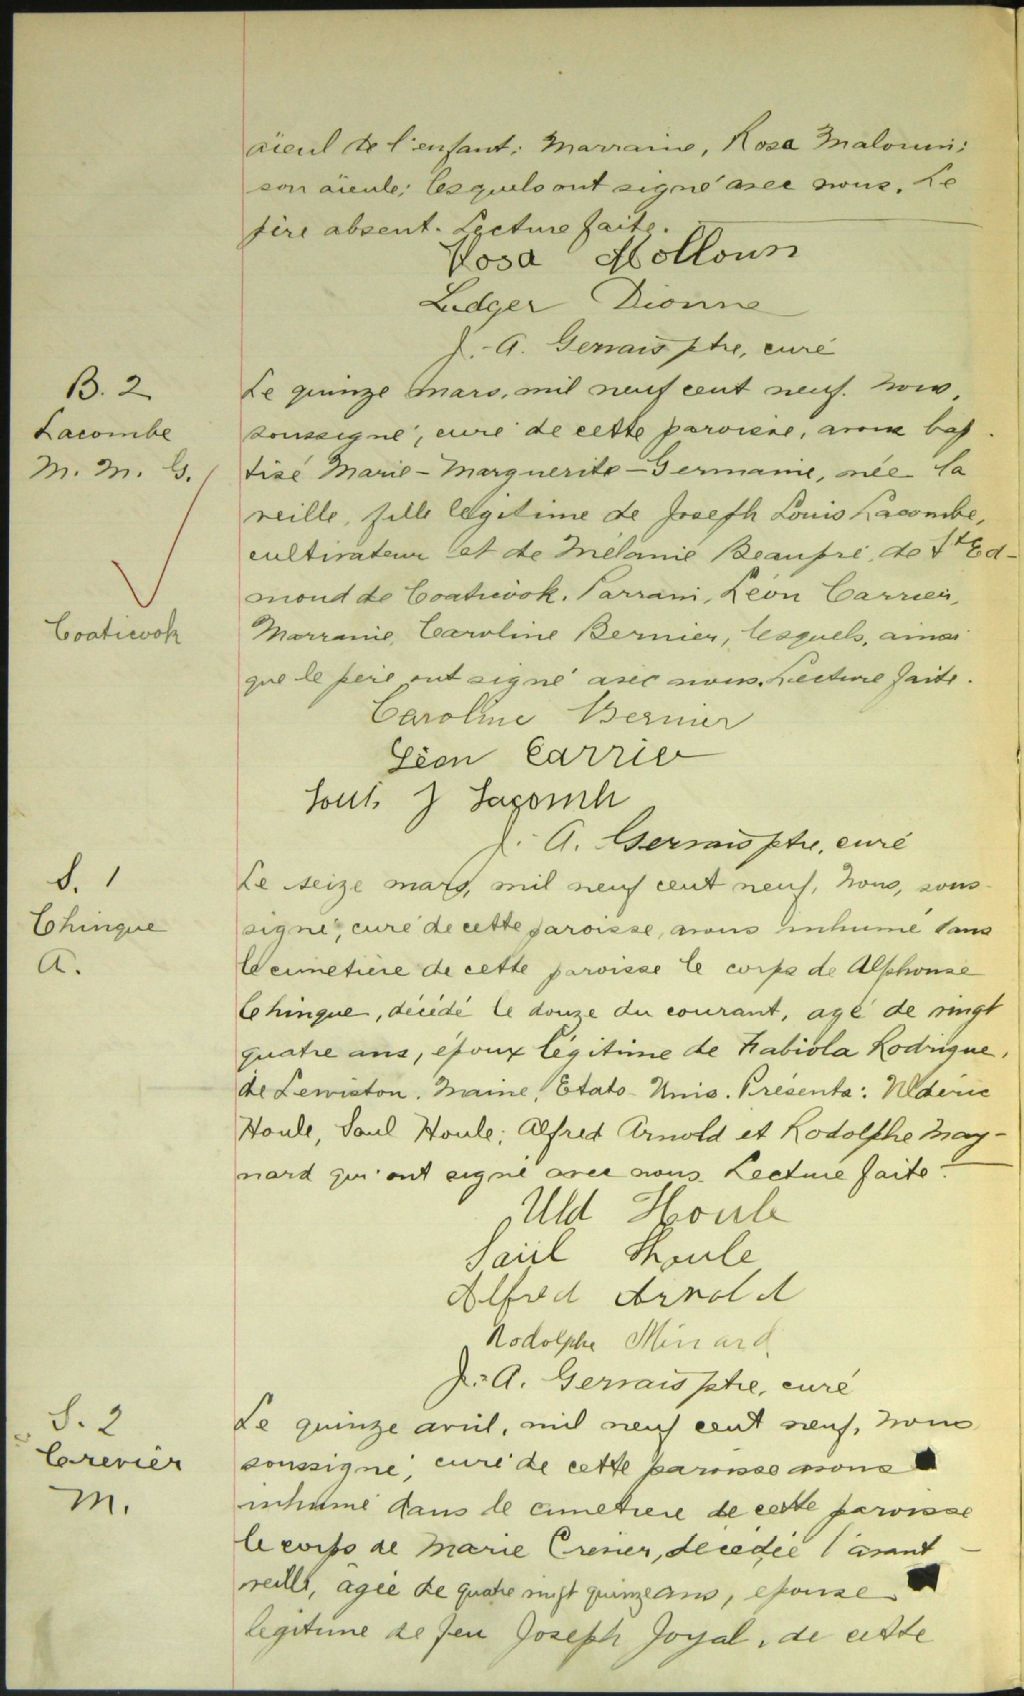 aïeul de l'enfant; Marraine, Rosa Malouin;
son aïeule; lesquels ont signé avec nous. Le
père absent. Lecture faite.
Rosa Mollown
Ludger Dionne
J.-A. Gervais ptre, curé
B. 2
Lacombe
M. M. G.
Coaticook
Le quinze mars, mil neuf cent neuf. Nous,
soussigné, curé de cette paroisse, avons bap-
tisé Marie-Marguerite-Germaine, née la
veille, fille légitime de Joseph Louis Lacombe,
cultivateur et de Mélanie Beaupré, de St Ed-
mond de Coaticook. Parrain, Léon Carrier,
Marraine, Caroline Bernier, lesquels, ainsi
que le père ont signé avec nous. Lecture faite.
Caroline Bernier
Léon Carrier
Louis J Lacomb
J. A. Gervais ptre, curé
S. 1
Chinque
A.
Le seize mars, mil neuf cent neuf, Nous, sous-
signé, curé de cette paroisse, avons inhumé dans
le cimetière de cette paroisse le corps de Alphonse
Chinque, décédé le douze du courant, agé de vingt
quatre ans, époux légitime de Fabiola Rodrigue,
de Lewiston. Maine, Etats-Unis. Présents: Uldéric
Houle, Saul Houle; Alfred Arnold et Rodolphe May-
nard qui ont signé avec nous. Lecture faite.
Uld Houle
Saül Houle
Alfred Arnold
Rodolphe Minard
J.-A. Gervais ptre, curé
S. 2
Crevier
M.
Le quinze avril, mil neuf cent neuf, nous
soussigné, curé de cette paroisse avons
inhumé dans le cimetiere de cette paroisse
le corps de Marie Crevier, décédée l'avant-
veille, âgée de quatre vingt quinze ans, epouse
legitime de feu Joseph Joyal, de cette